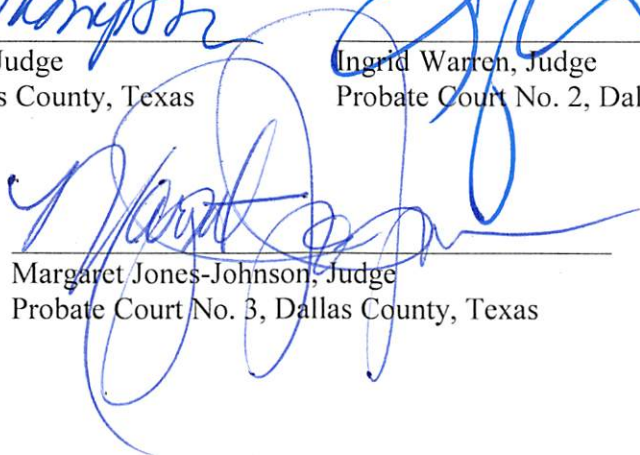 Thompson
Judge
s County, Texas
Ingrid Warren, Judge
Probate Court No. 2, Dal
Margaret Jones-Johnson, Judge
Probate Court No. 3, Dallas County, Texas